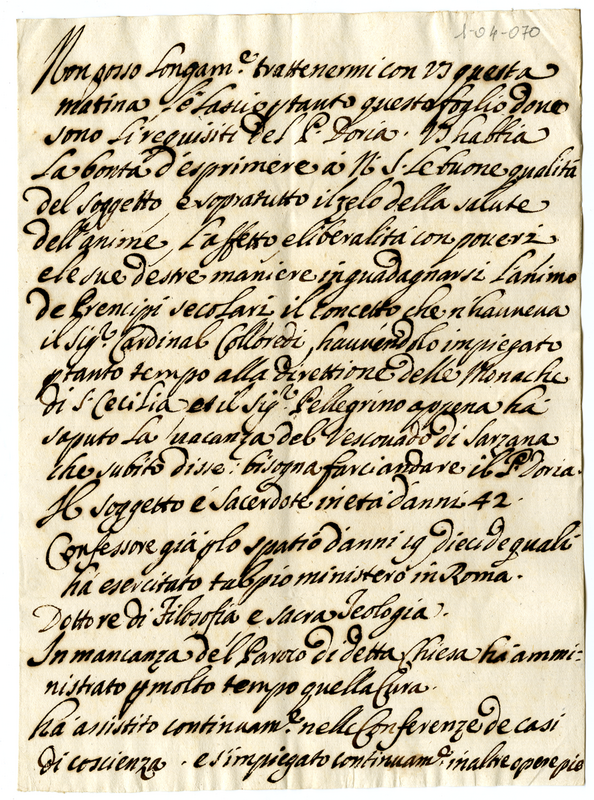 1-04-070
Non posso longam.e trattenermi con VS questa
matina le lascio ptanto questo foglio doue
sono li requisiti del P. Doria. VS habbia
la bontà d'esprimere à N. S. le buone qualità
del soggetto e sopratutto il zelo della salute
dell'anime, l'affetto e liberalità con poueri
e le sue destre maniere in guadagnarsi l'animo
de Prencipi secolari il concetto che n'haueua
il Sig.r Cardinal Colloredi, hauendolo impiegato
ptanto tempo alla direttione delle Monache
di S. Cecilia et il Sig.r Pellegrino appena hà
saputo la uacanza del Vescouado di Sarzana
che subito disse: bisogna farci andare il P. Doria.
Il soggetto è sacerdote in età d'anni 42.
Confessore già plo spatio d'anni 19 dieci de quali
hà esercitato tal pio ministero in Roma.
Dottore di Filosofia e sacra Teologia.
In mancanza del Paroco di detta Chiesa hà ammi-
nistrato p molto tempo quella Cura.
hà assistito continuam.e nelle Conferenze de casi
di coscienza. e s'impiegato continuam.e in altre opere pie